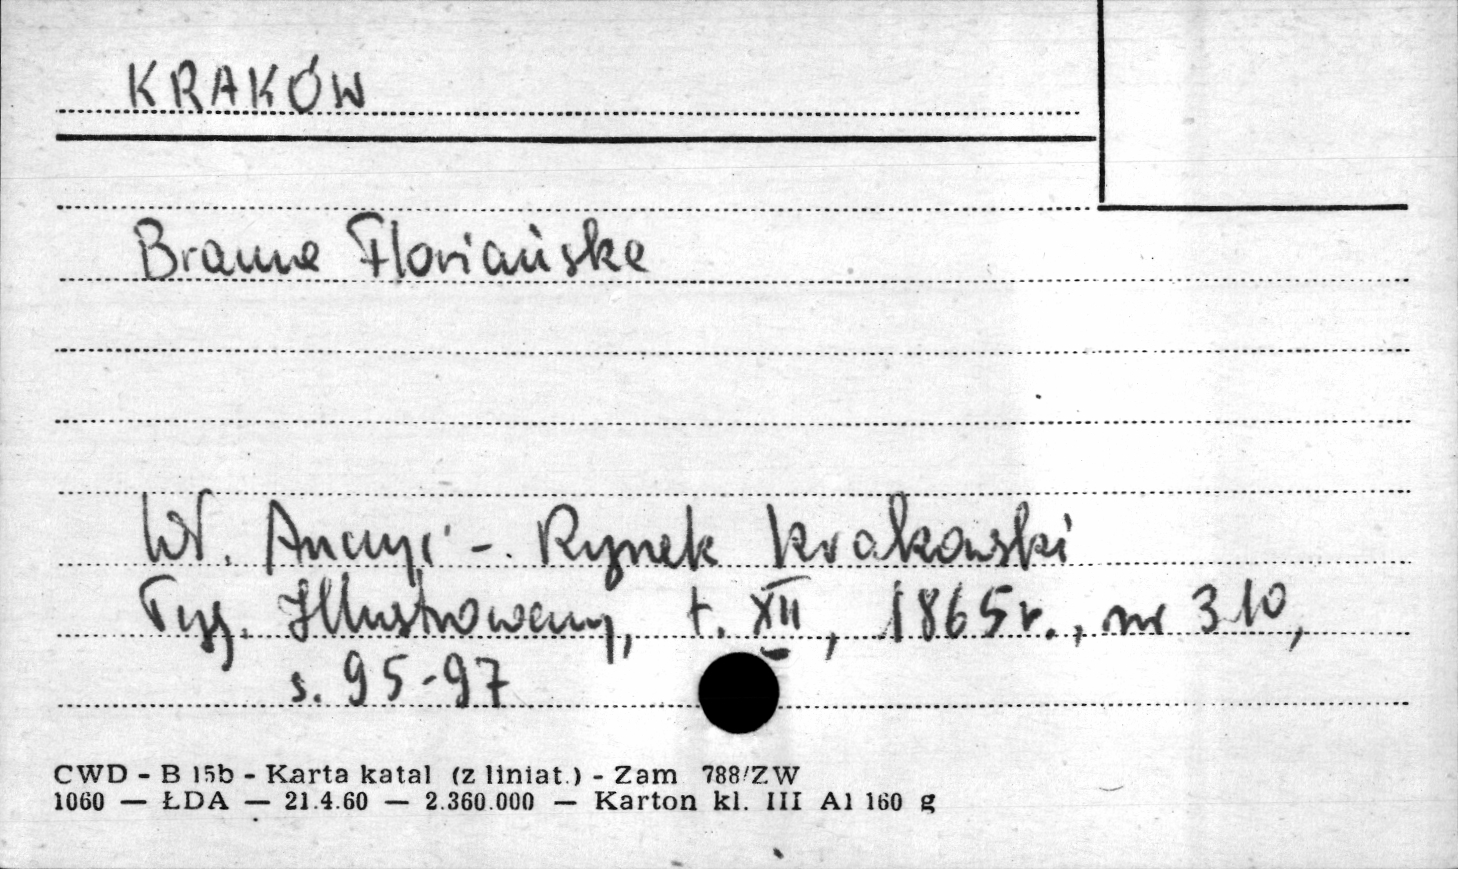 KRAKÓW
Brama Floriańska
Wł. Anczyc - Rynek krakowski
Tyg. Illustrowany, t. XII, 1865 r., nr 310,
s. 95-97
CWD - B 15b - Karta katal (z liniat.) - Zam 788/ZW
1060 — ŁDA — 21.4.60 — 2.360.000 — Karton kl. III A1 160 g